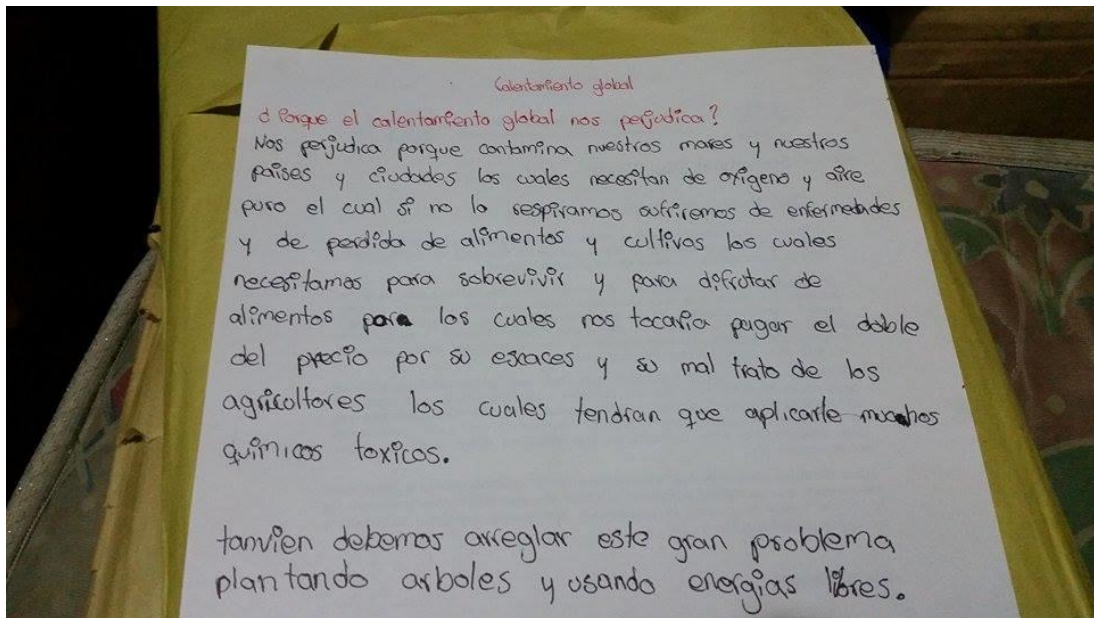 Calentamiento global
¿Porque el calentamiento global nos perjudica?
Nos perjudica porque contamina nuestros mares y nuestros
paises y ciudades los cuales necesitan de oxigeno y aire
puro el cual si no lo respiramos sufriremos de enfermedades
y de perdida de alimentos y cultivos los cuales
necesitamos para sobrevivir y para difrutar de
alimentos para los cuales nos tocaria pagar el doble
del precio por su escaces y su mal trato de los
agricoltores los cuales tendran que aplicarle muchos
quimicos toxicos.
tanvien debemos arreglar este gran problema
plantando arboles y usando energias libres.